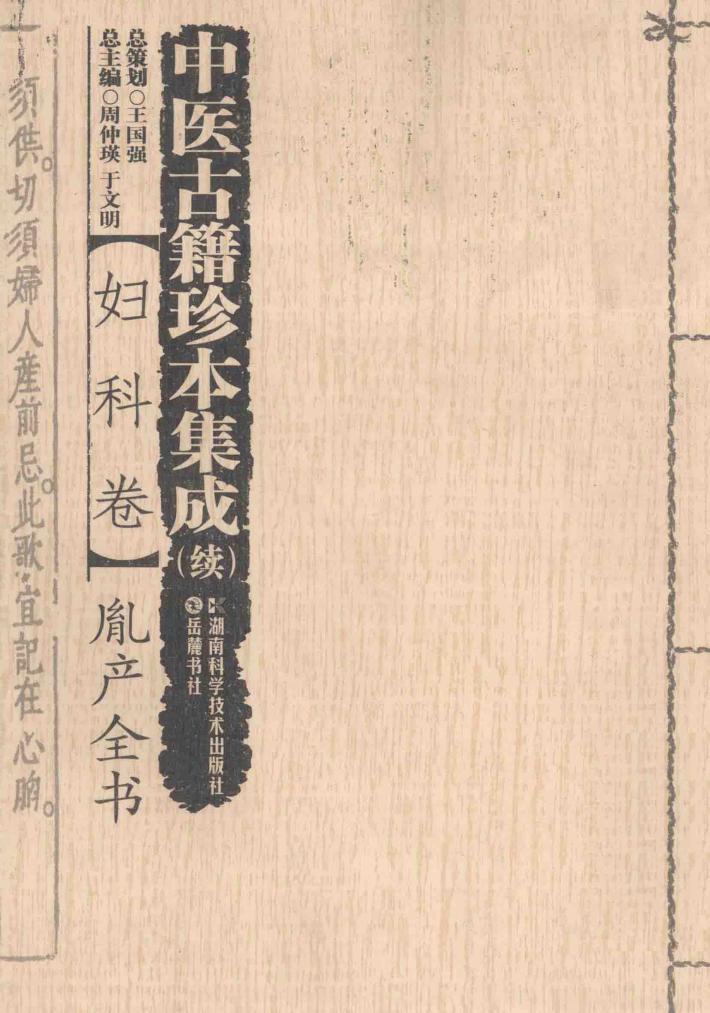 中医古籍珍本集成
(续)
湖南科学技术出版社
岳麓书社
总策划○王国强
总主编○周仲瑛 于文明
【妇科卷】
胤产全书
须供。切須婦人産前忌。此歌宜記在心胸。